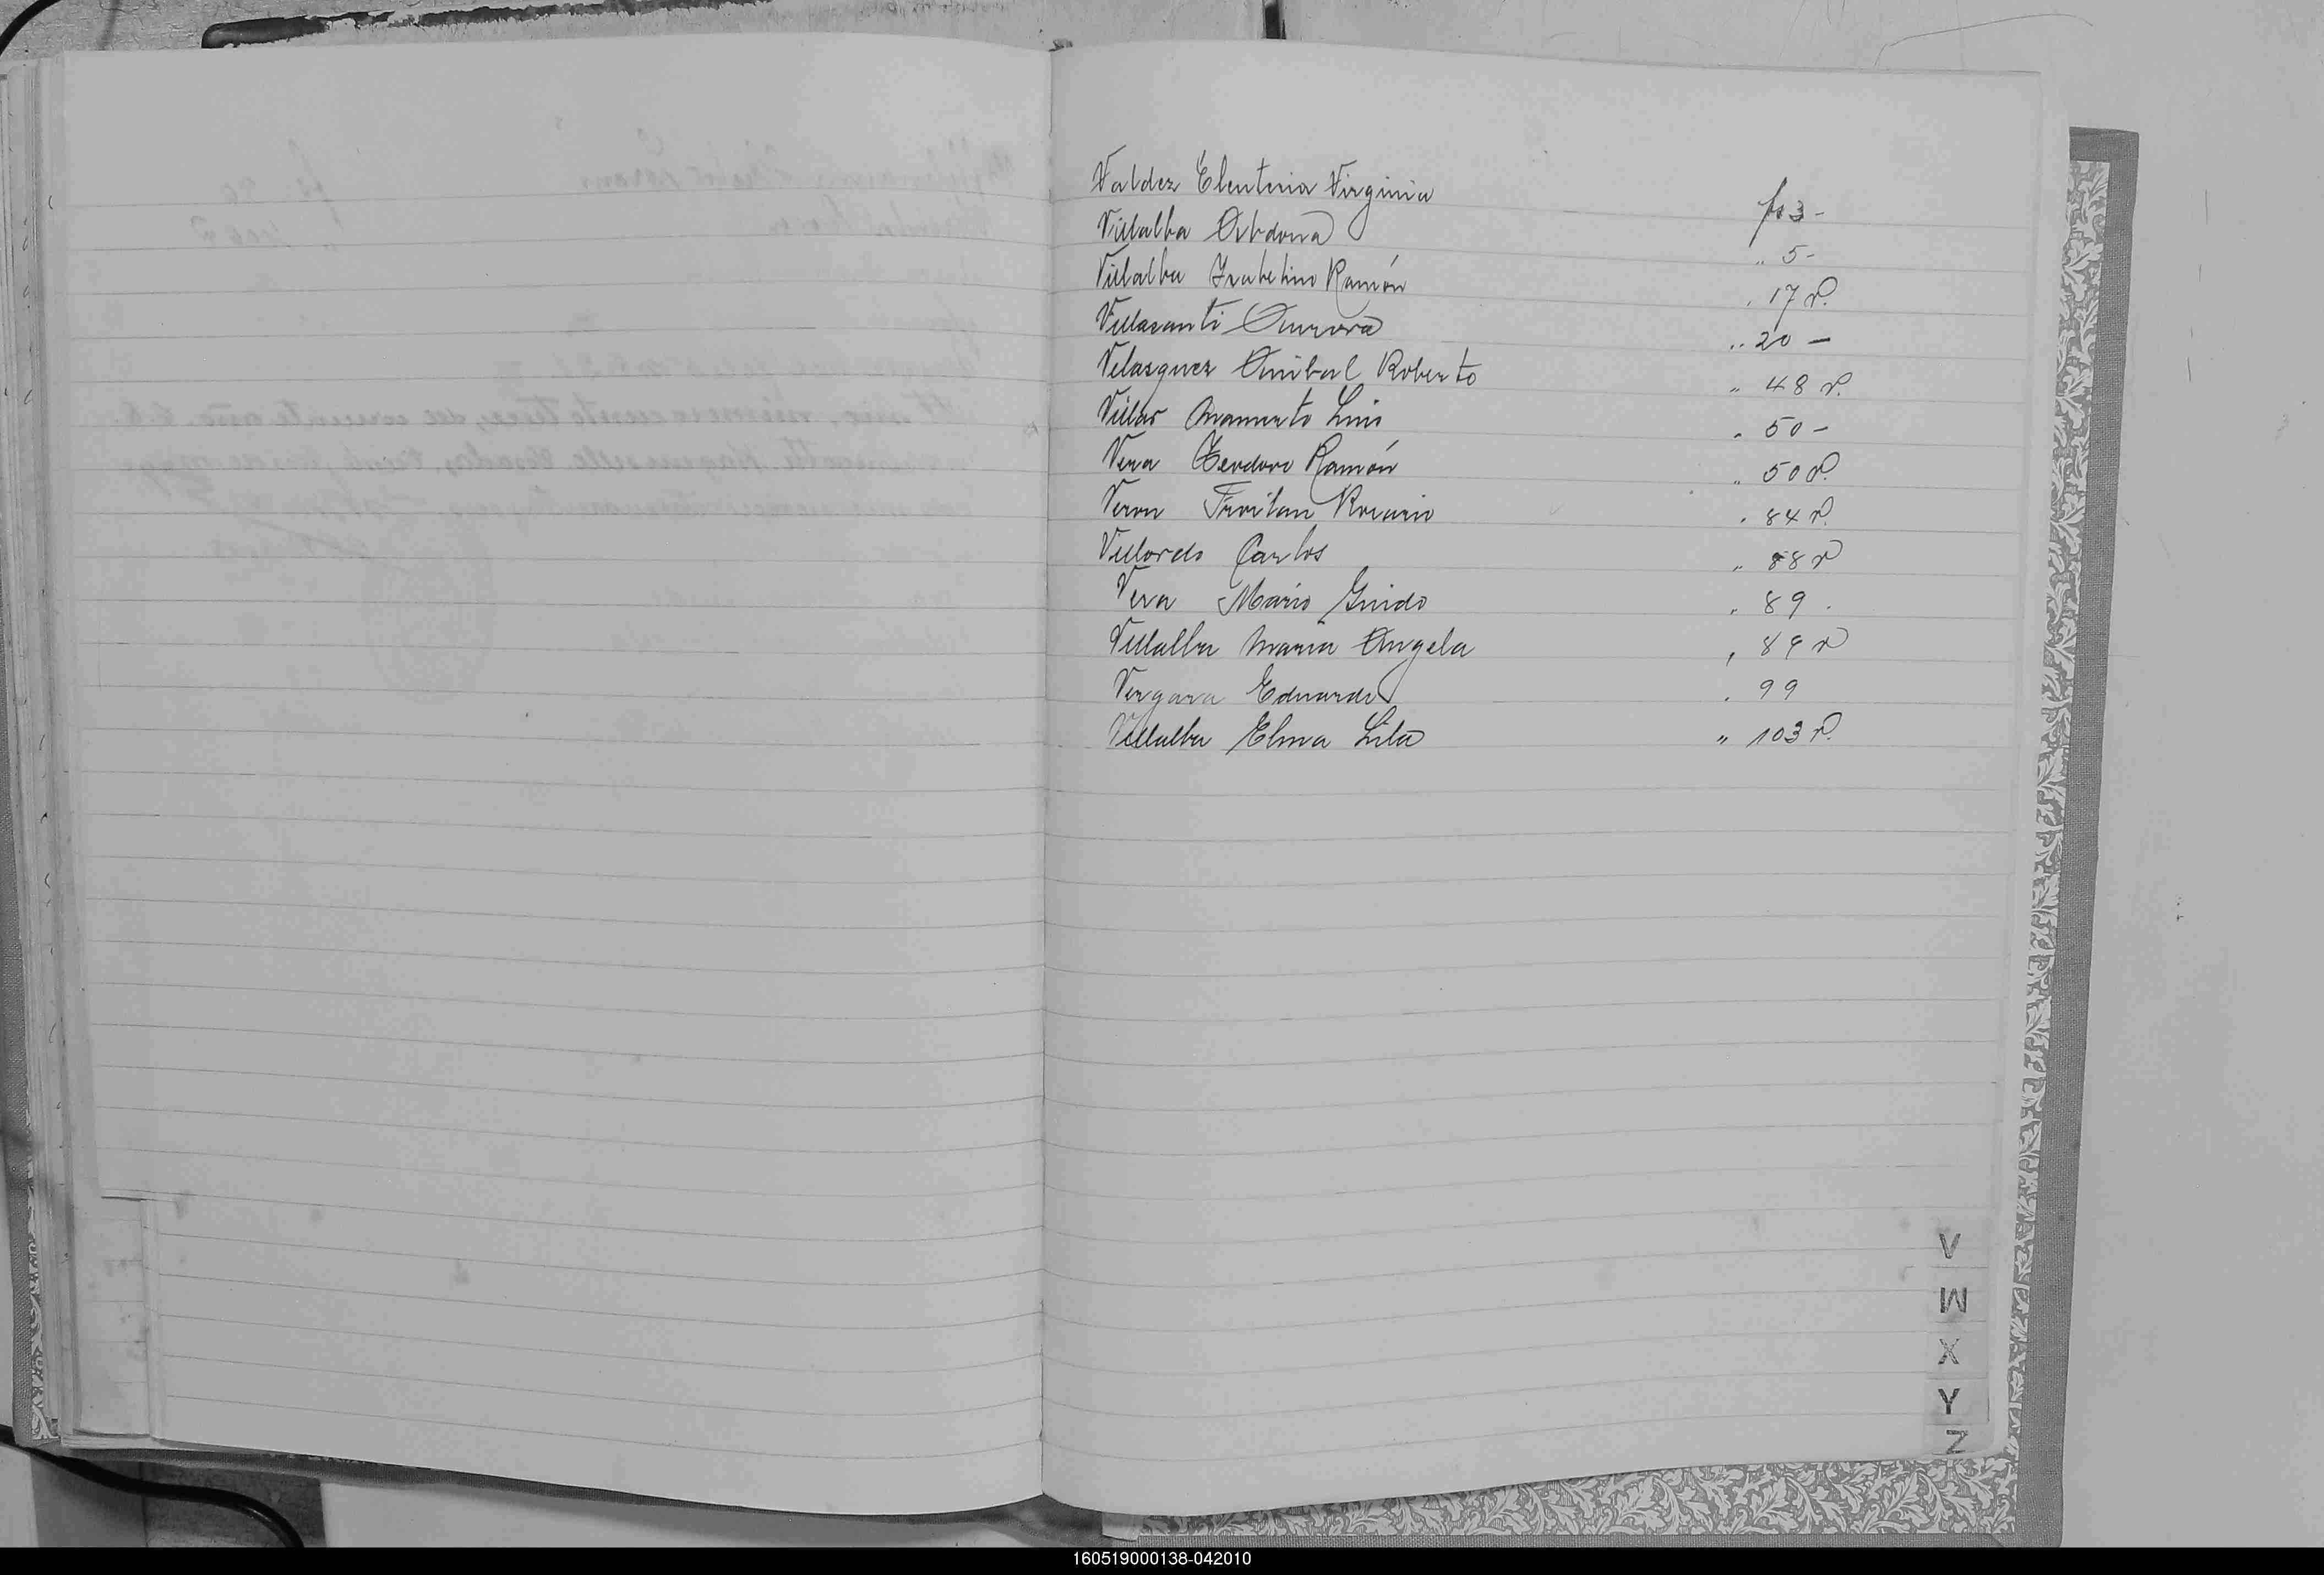 Valdez Eleuteria Virginia fs 3-
Villalba Obdona " 5-
Villalba Isabelino Ramón " 17 v.
Villasanti Aurora " 20 -
Velasquez Anibal Roberto " 48 v.
Villar Mamerto Luis " 50 -
Vera Teodoro Ramón " 50 v.
Veron Froilan Rosario " 84 v.
Villordo Carlos " 88 v
Vera Mario Guido " 89 .
Villalba Maria Angela " 89 v
Vergara Eduardo " 99
Villalba Elma Lila " 103 v.
V
W
X
Y
Z
160519000138-042010